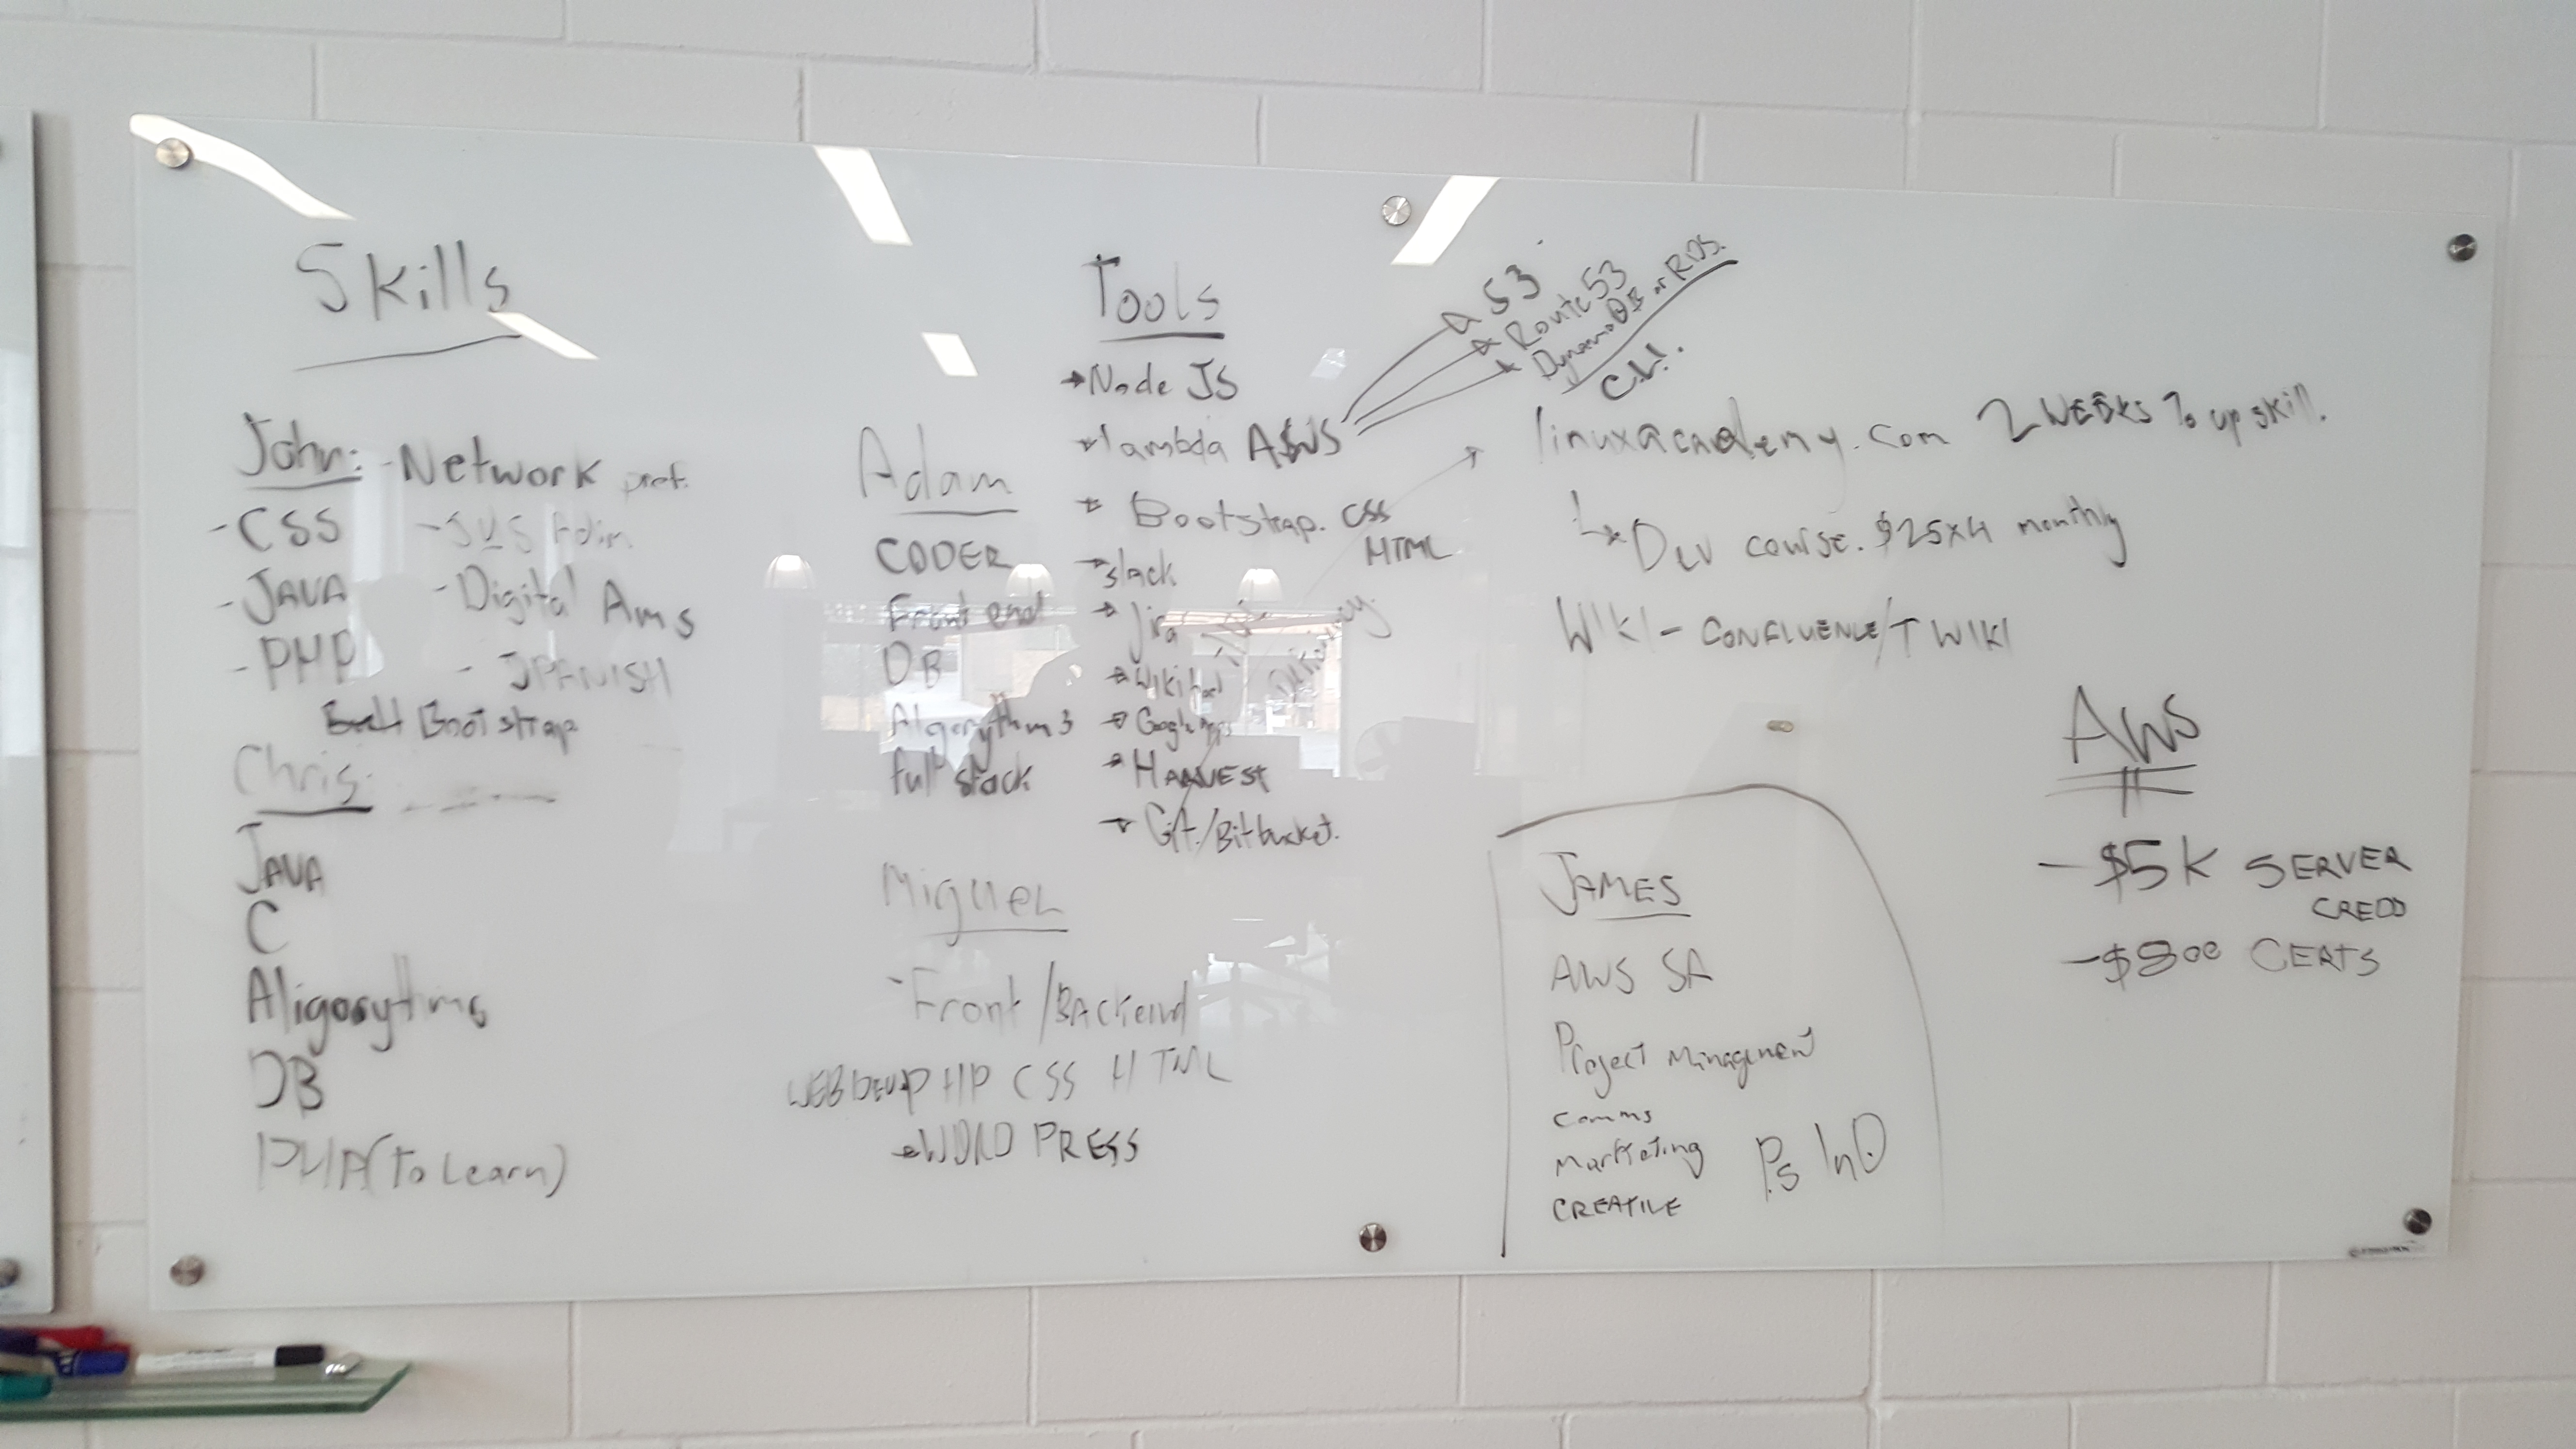 Skills
John: - Network pref.
- CSS
- JAVA
- Digital Ams
- PHP
- SPANISH
Bootstrap
Chris:
JAVA
C
Aligorythms
DB
(To Learn)
Adam
CODER
Front end
DB
Algorythms
full stack
Miguel
- Front / BACKend
CSS HTML
WORD PRESS
Tools
Node JS
lambda AWS
S3
Route 53
Dynamo DB or RDS.
Bootstrap. CSS
HTML
slack
Jira
Wiki tool
Google Apps
HARVEST
Git/Bitbucket.
linuxacademy.com 2 WEEKS To upskill.
Dev course. $25x4 monthly
WIKI - CONFLUENCE/TWIKI
JAMES
AWS SA
Project Managment
comms
Marketing
CREATIVE
Ps InD
AWS
- $5K SERVER
CRED
- $800 CERTS